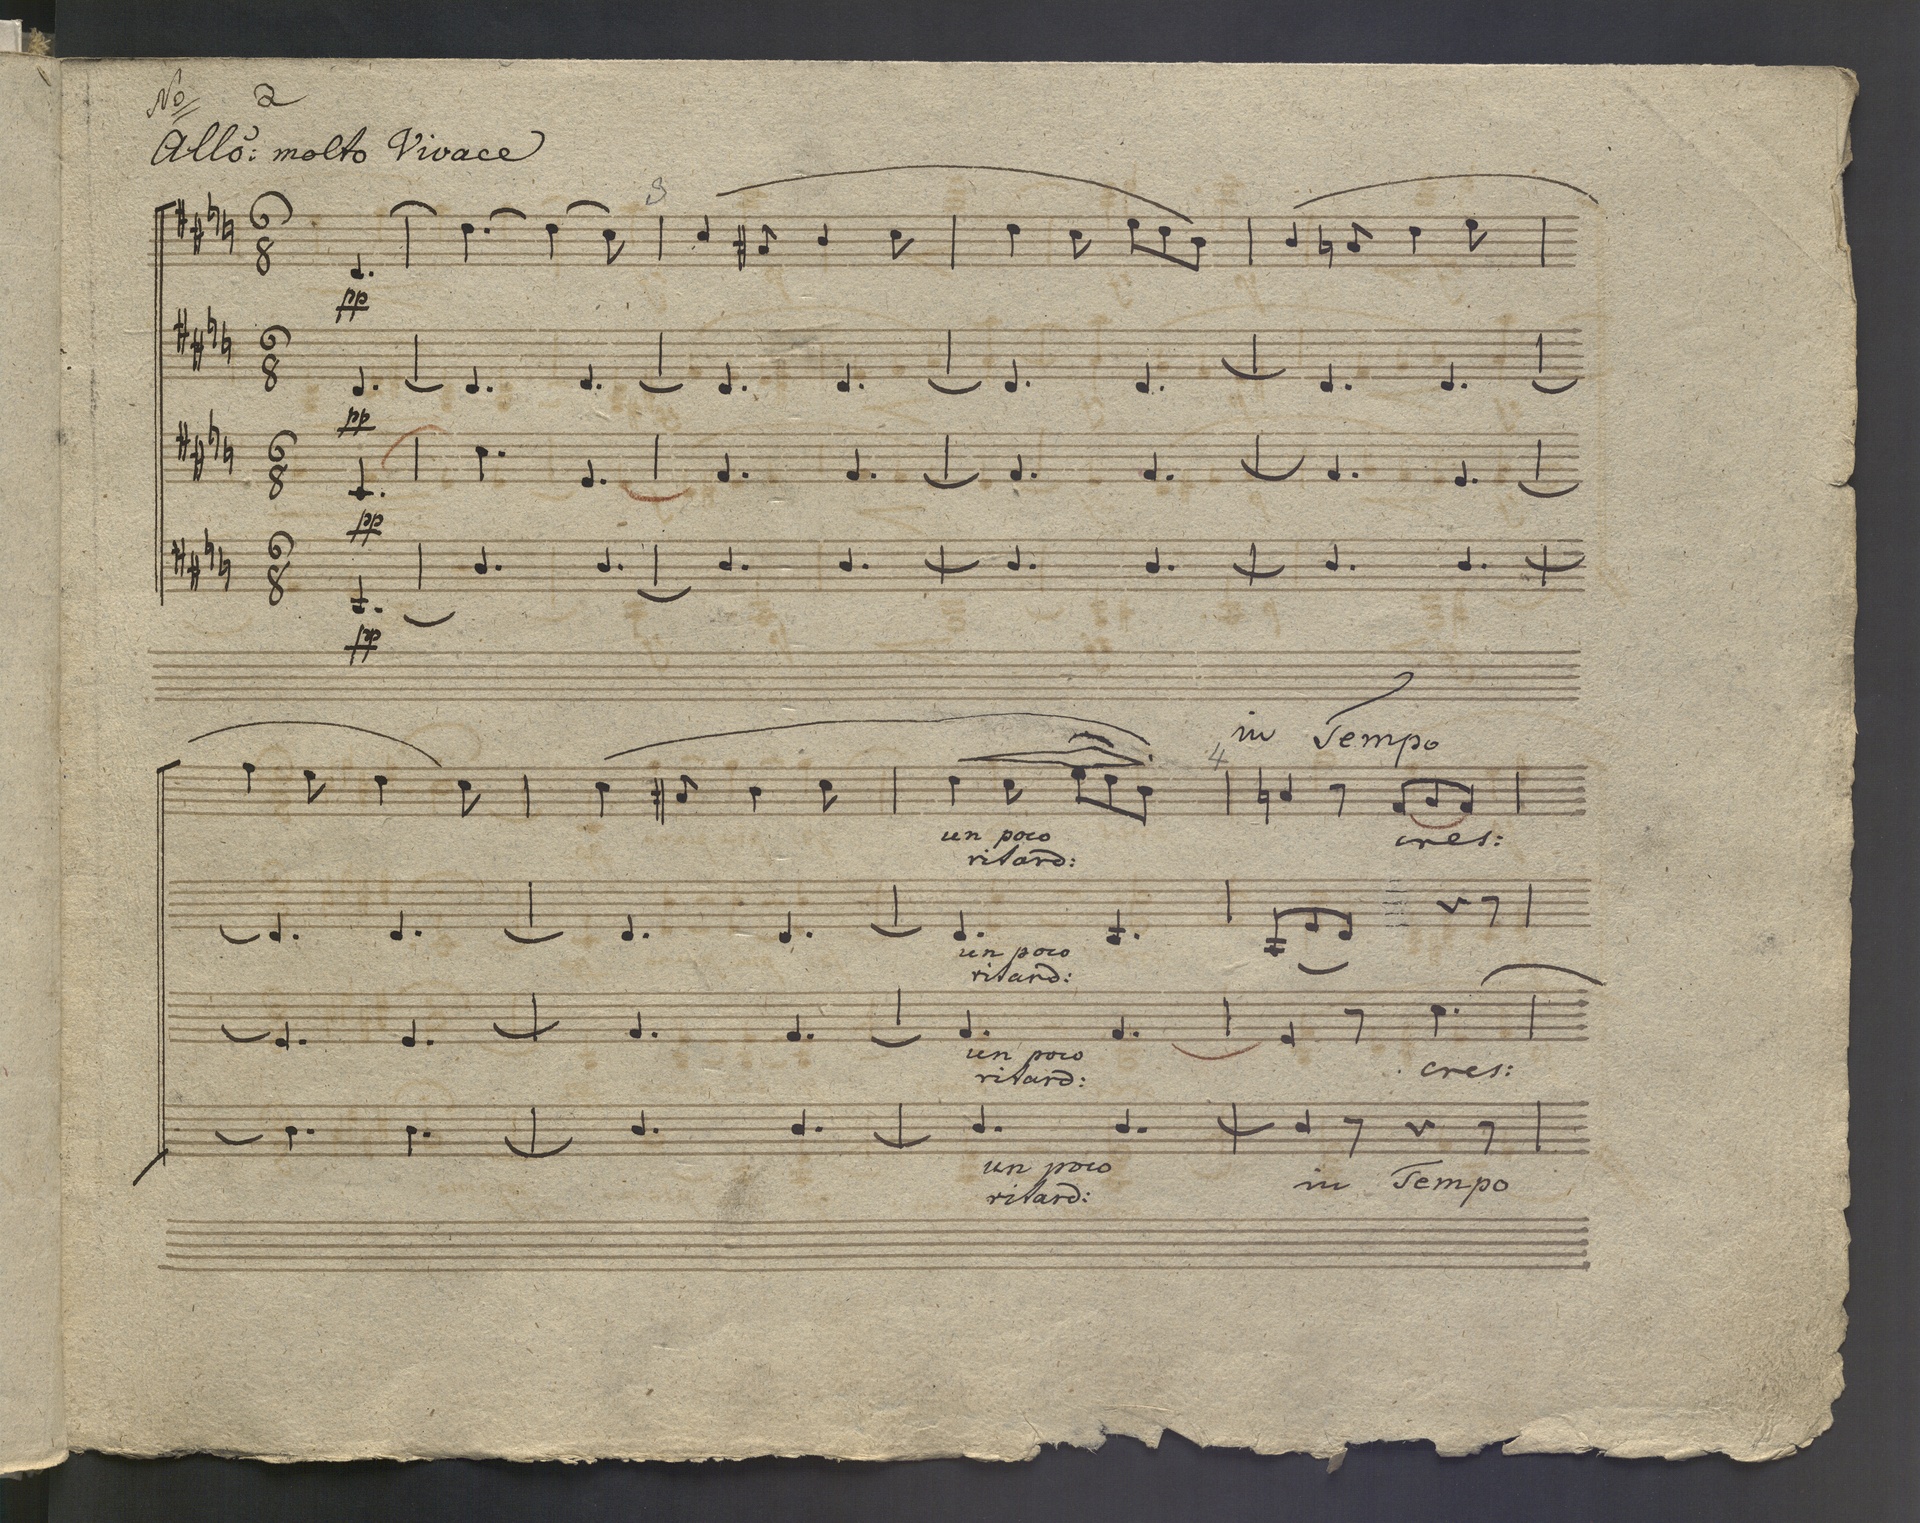 No 2
Allo: molto Vivace
3
6
8
pp
6
8
pp
6
8
pp
6
8
pp
in Tempo
4
un poco
ritard:
cres:
un poco
ritard:
un poco
ritard:
cres:
un poco
ritard:
in Tempo